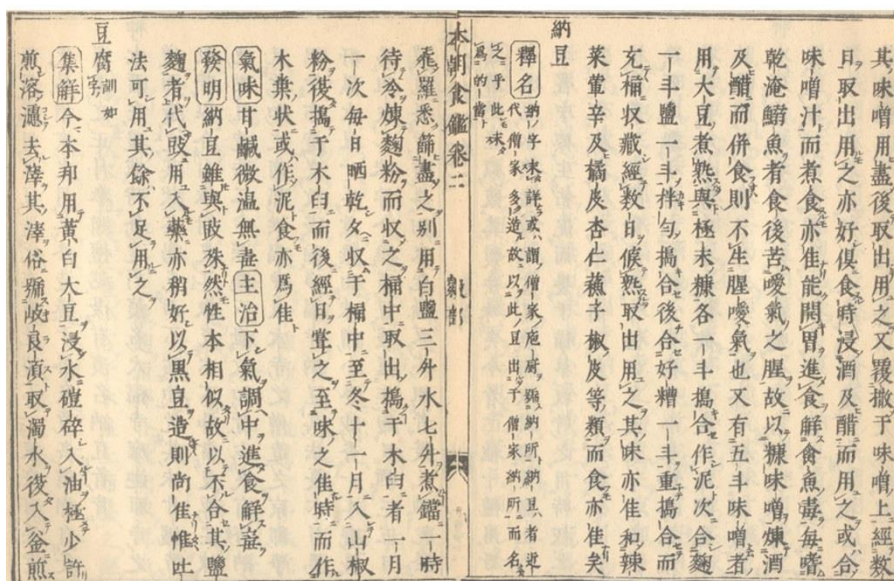 其味噌用盡後取出用之又覆撒于味噌上經數
日取出用之亦好復食時浸酒及醋而用之或合
味噌汁而煮食亦佳能開胃進食解食魚毒每嗜
乾淹鰌魚者食後苦噯氣之腥故以糠味噌煉酒
及醋而併食則不生腥噯氣也又有五斗味噌者
用大豆煮熟與極末糠各一斗搗合作泥次合麹
一斗鹽一斗拌勻搗合後合好糟一斗重搗合而
充桶収藏經數日候熟取出用之其味亦佳和辣
菜葷辛及橘皮杏仁蘓子椒皮等類而食亦佳矣
納豆
釋名 納字未詳或謂僧家庖厨稱納所納豆者近
代僧家多造故以此豆出于僧家納所而名
之乎此未
爲的當
本朝食鑑卷二
穀部
乖羅悉篩盡之別用白鹽三升水七升煮鐺一時
待冷煉麹粉而収之桶中取出搗于木臼者一月
一次每日晒乾夕収于桶中至冬十一月入山椒
粉後搗于木臼而後經日聋之至味之佳時而作
木葉狀或作泥食亦爲佳
氣味 甘鹹微温無毒 主治 下氣調中進食解毒
發明 納豆雖與豉殊然性本相似故以不合其鹽
麹者代豉用入藥亦稍好以黒豆造則尚佳惟吐
法可用其餘不足用之
豆腐 訓如字
集解 今本邦用黄白大豆浸水磑碎入油極少許
煎溶濾去滓其滓俗稱岐良須取濁水後入釜煎